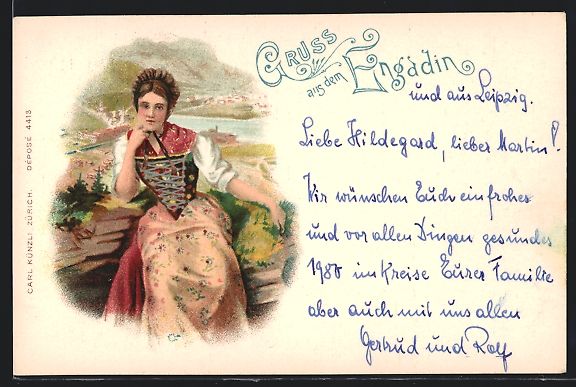 GRUSS
aus dem
Engadin
und aus Leipzig.
Liebe Hildegard, lieber Martin!
Wir wünschen Euch ein frohes
und vor allen Dingen gesundes
1980 im Kreise Eurer Familie
aber auch mit uns allen
Gertrud und Rolf
CARL KÜNZLI ZÜRICH. DÉPOSÉ 4413